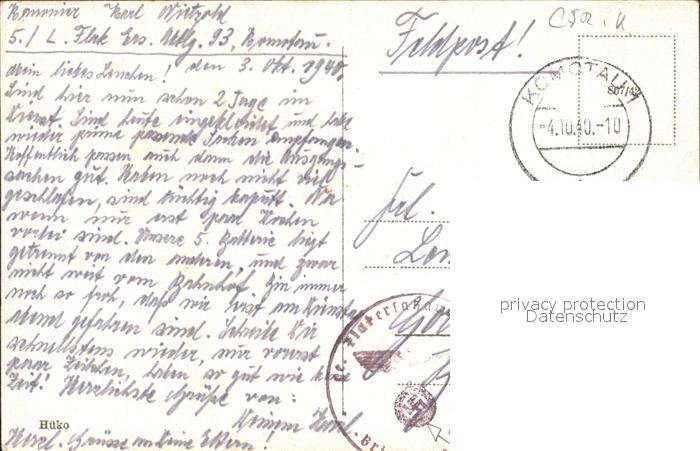 Kanonier Karl Wietzold
5./ L. Flak Ers. Abtlg. 93, Komotau.
Mein liebes Lenchen! den 3. Okt. 1940.
Sind hier nun schon 2 Tage im
Dienst. Sind heute eingekleidet und habe
wieder prima passende Sachen empfangen.
Hoffentlich passen auch dann die Ausgangs-
sachen gut. Haben noch nicht viel
geschlafen, sind tüchtig kaputt. Na
wenn nur erst paar Wochen
vorbei sind. Unsere 5. Batterie liegt
getrennt von den anderen, und zwar
nicht weit vom Bahnhof. Bin immer
noch so froh, daß wir erst am Dienstag
abend gefahren sind. Schreibe Du
schnellstens wieder, nur vorerst
paar Zeilchen, haben so gut wie keine
Zeit! Herzlichste Grüße von:
Deinem Karl.
Herzl. Grüsse an Deine Eltern!
Hüko
Feldpost!
ČSR. K
KOMOTAU 1
-4.10.40.-10
867/42
Frl.
privacy protection
Datenschutz